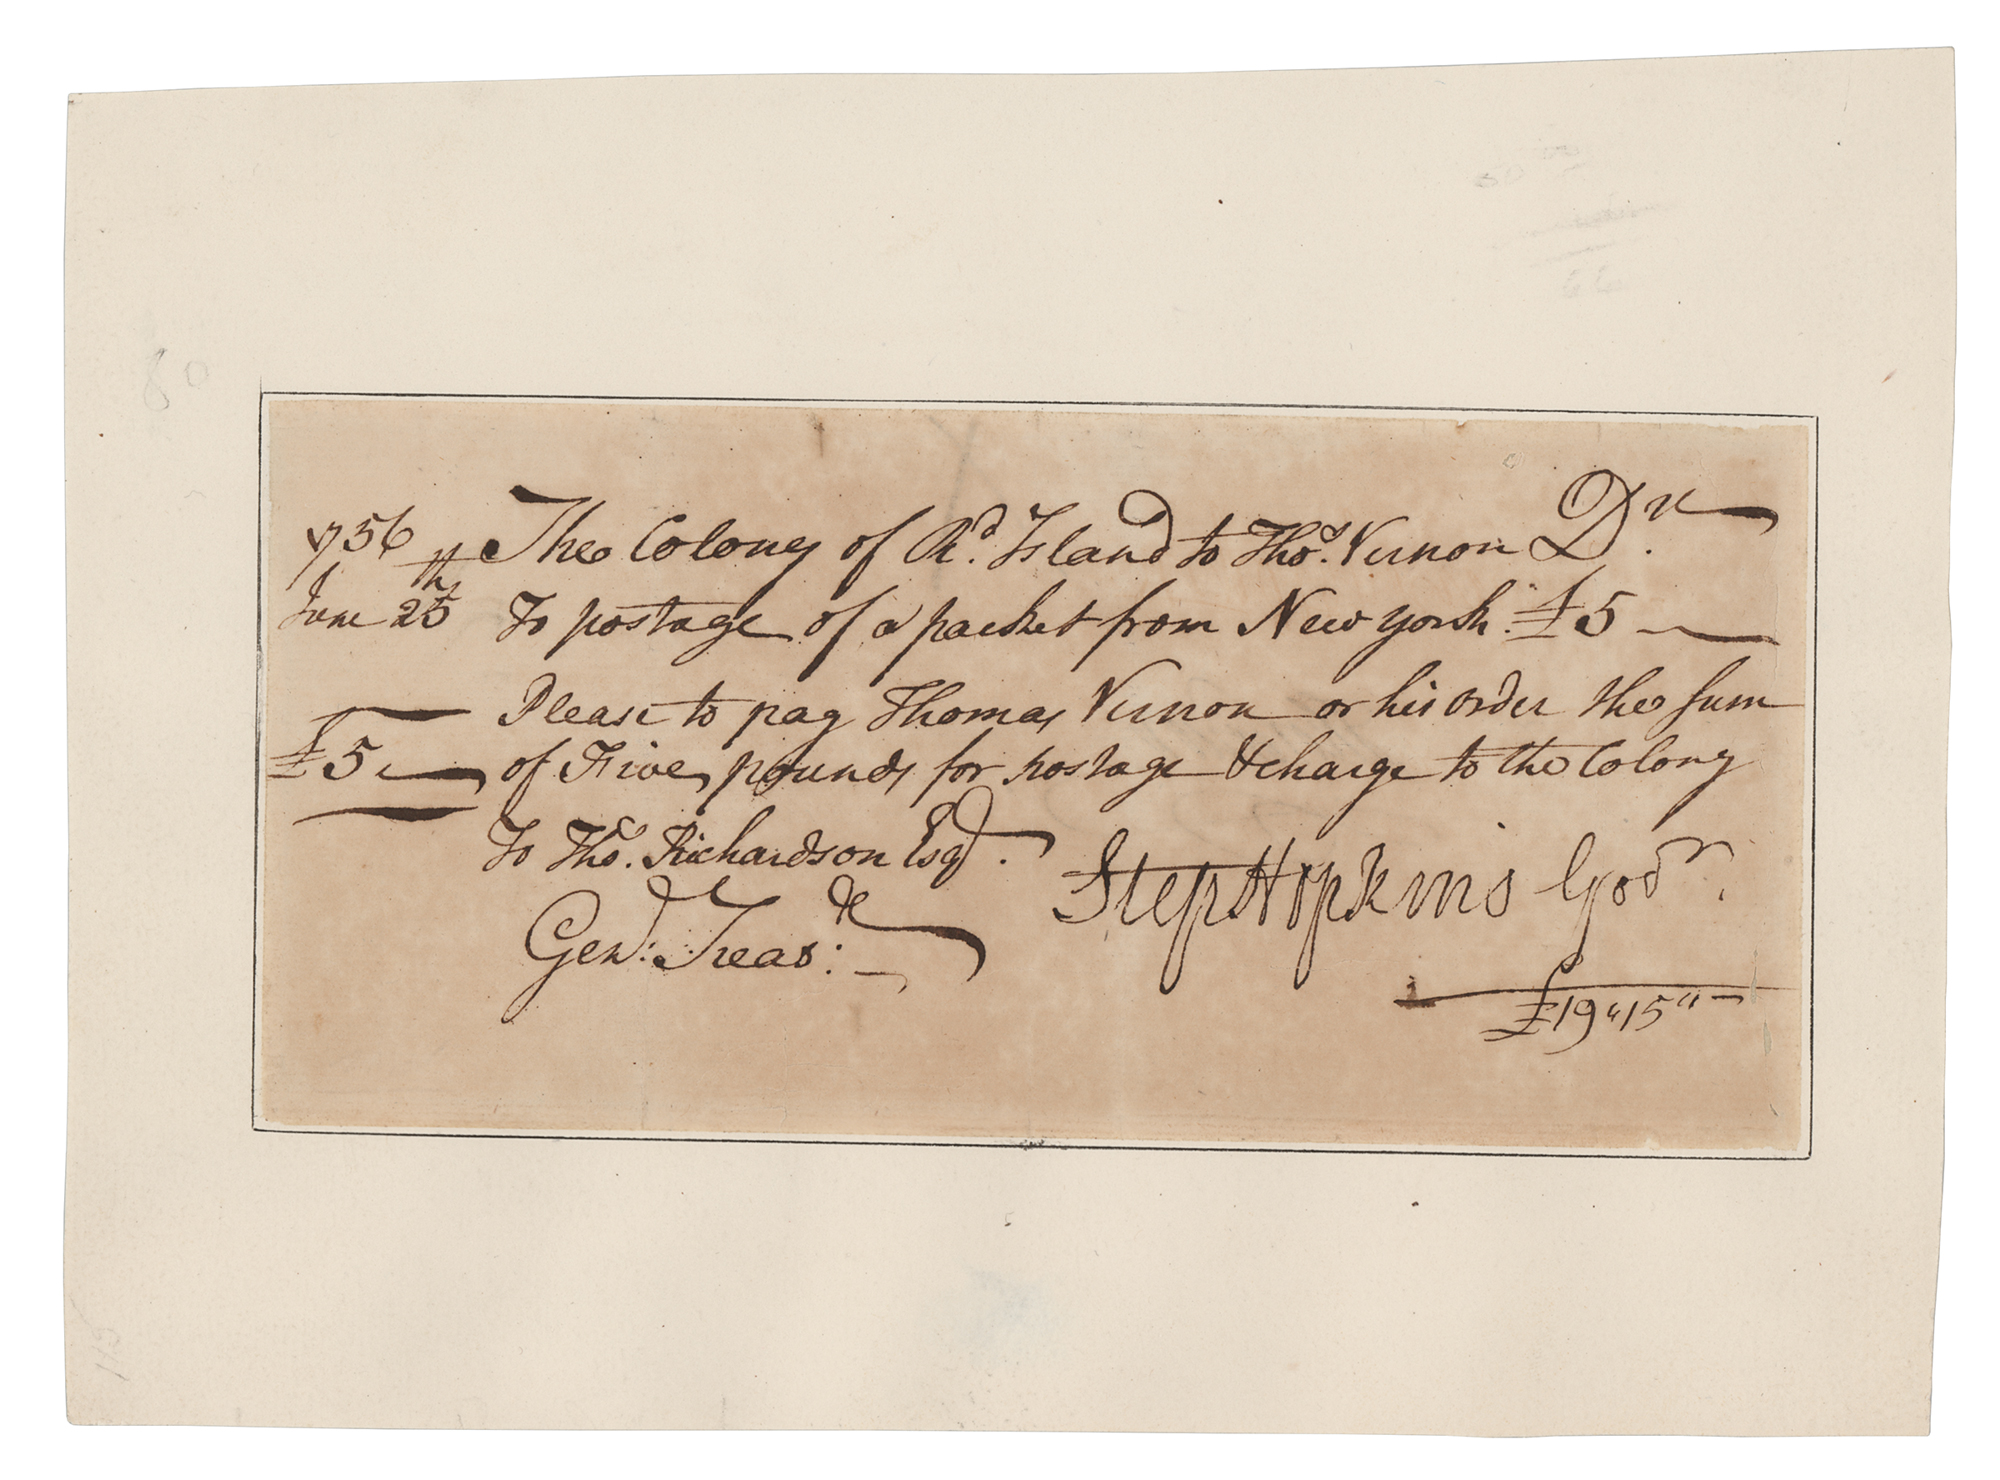 1756 The Colony of Rd. Island to Thos. Vernon Dr.
June 25th To postage of a packet from New york. £5 —
Please to pay Thomas Vernon or his order the sum
£5 — of Five pounds for postage & charge to the Colony
To Tho. Richardson Esqr.
Step Hopkins Govr.
Genl: Treas:
£19"15"—
80